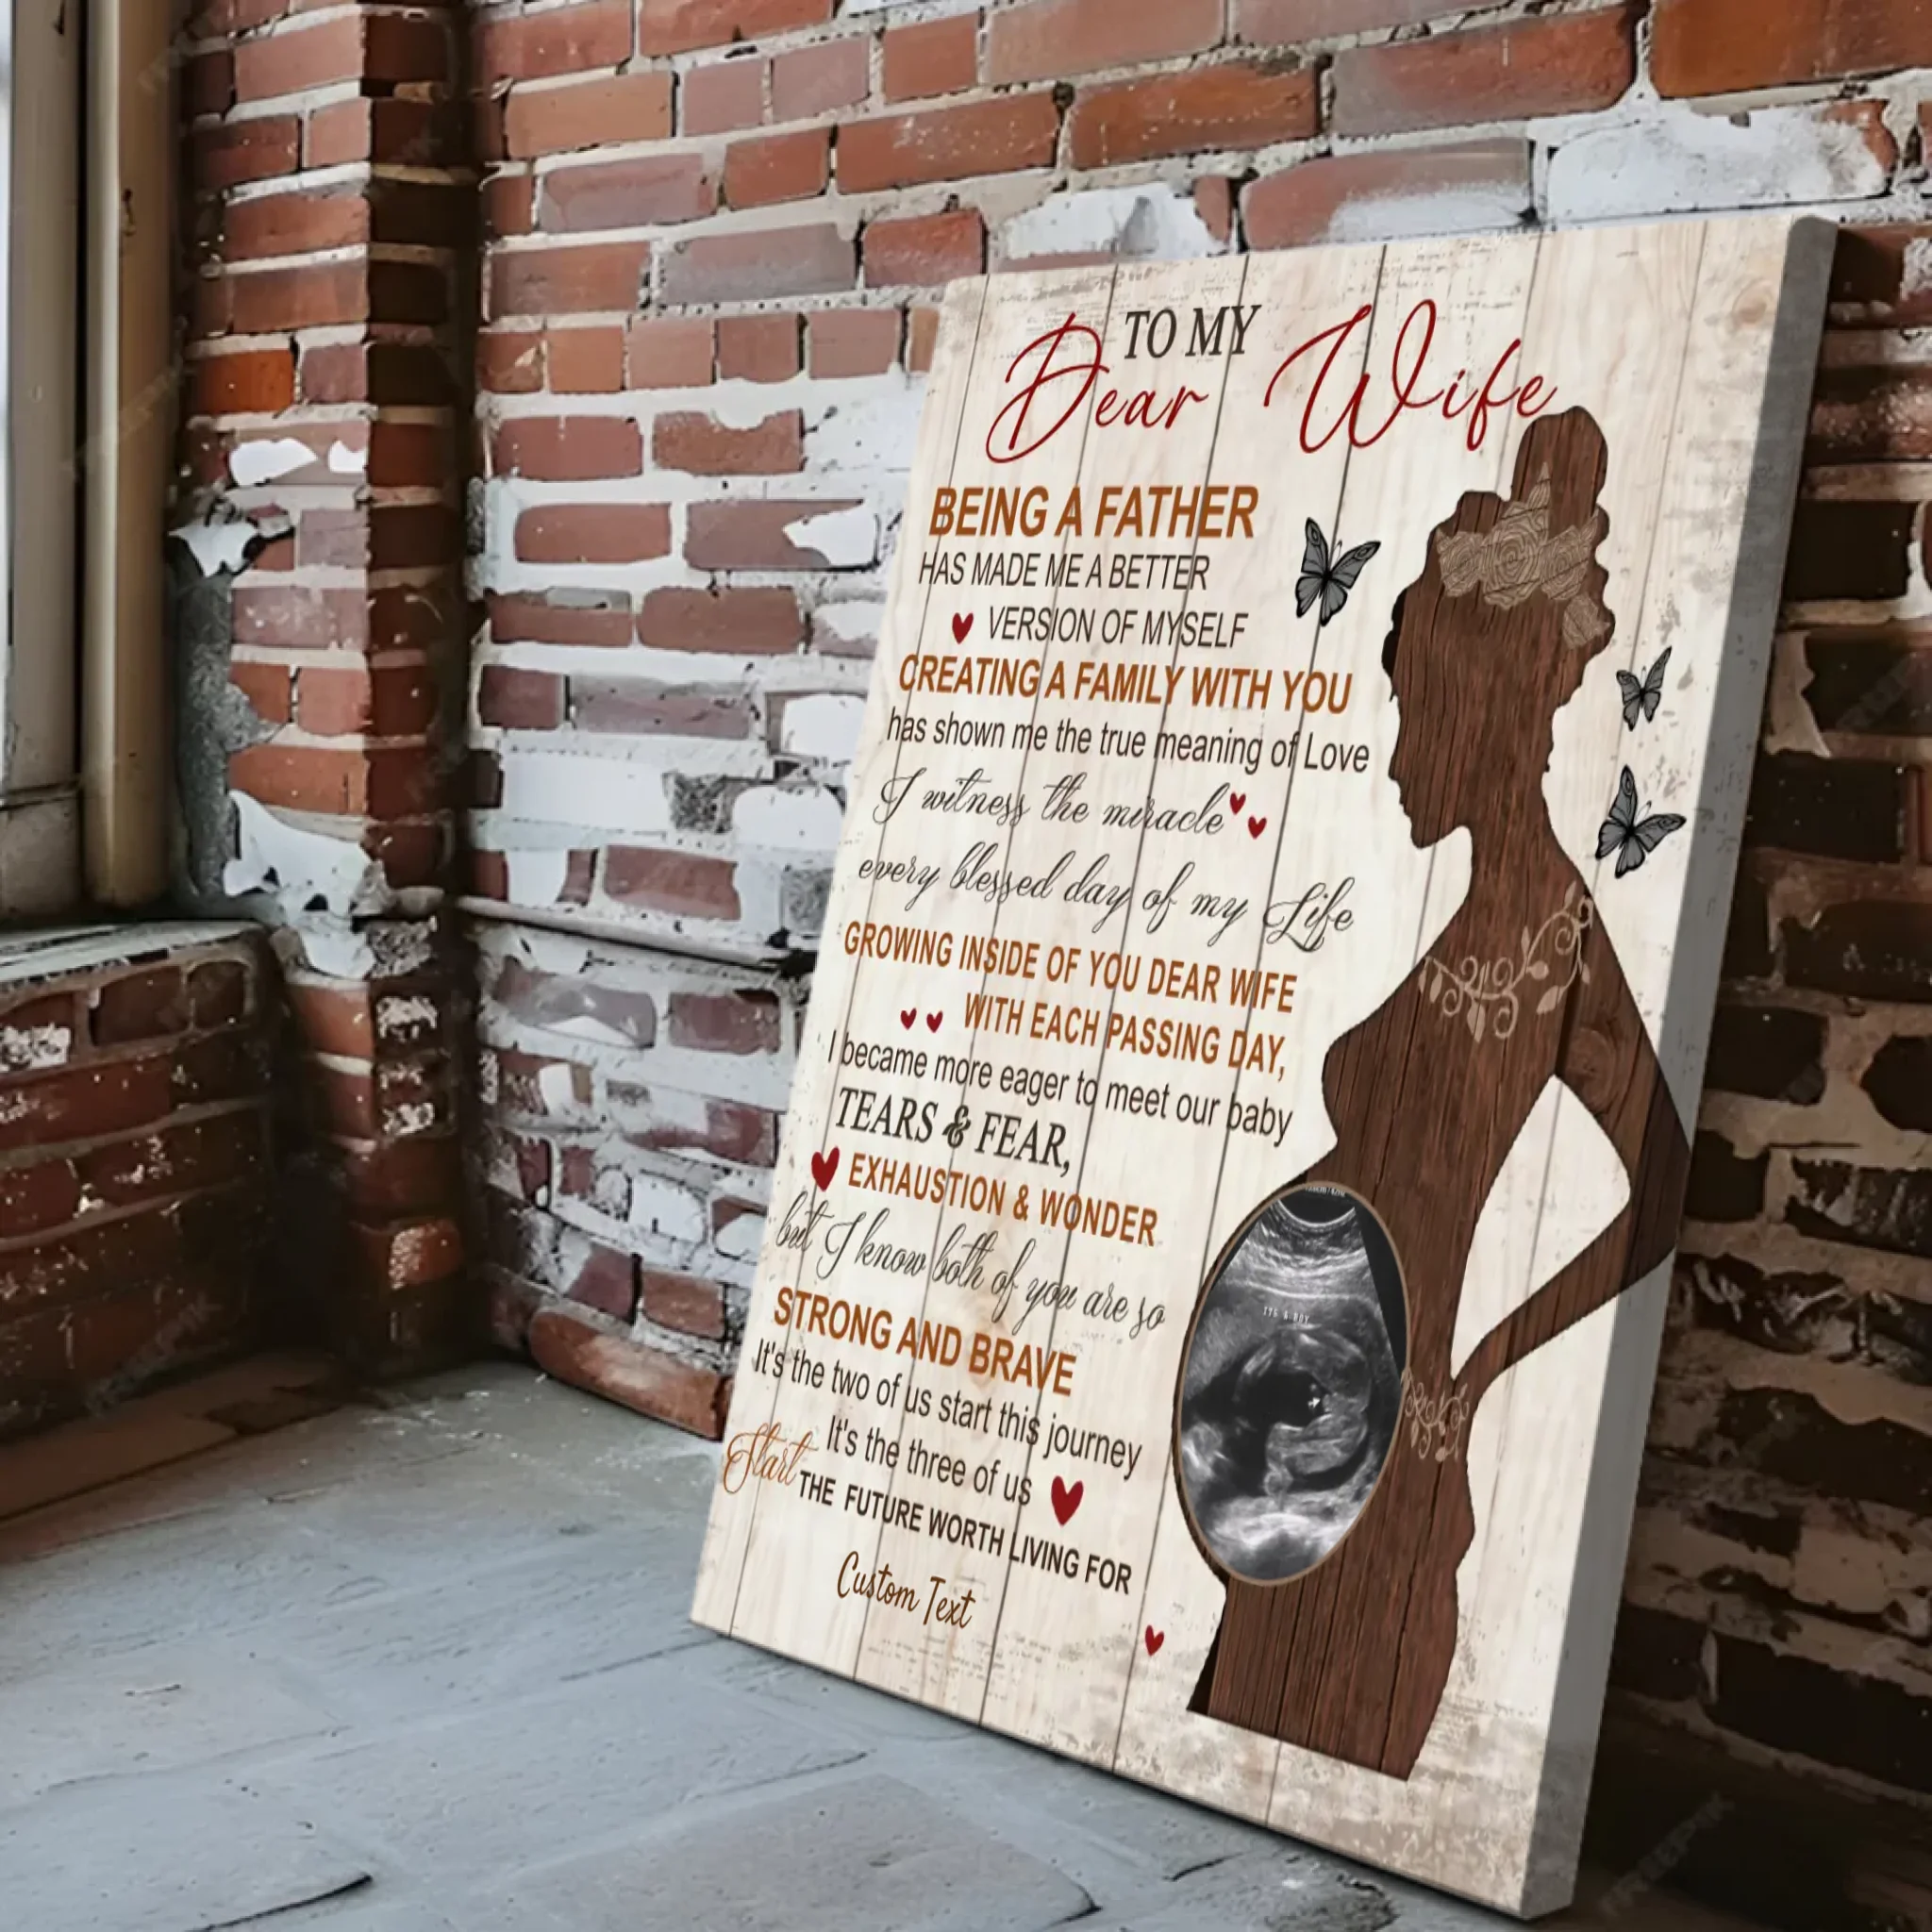 TO MY
Dear Wife
BEING A FATHER
HAS MADE ME A BETTER
VERSION OF MYSELF
CREATING A FAMILY WITH YOU
has shown me the true meaning of Love
I witness the miracle
every blessed day of my Life
GROWING INSIDE OF YOU DEAR WIFE
WITH EACH PASSING DAY,
I became more eager to meet our baby
TEARS & FEAR,
EXHAUSTION & WONDER
but I know both of you are so
STRONG AND BRAVE
It's the two of us start this journey
It's the three of us
Start THE FUTURE WORTH LIVING FOR
Custom Text
ITS A BOY